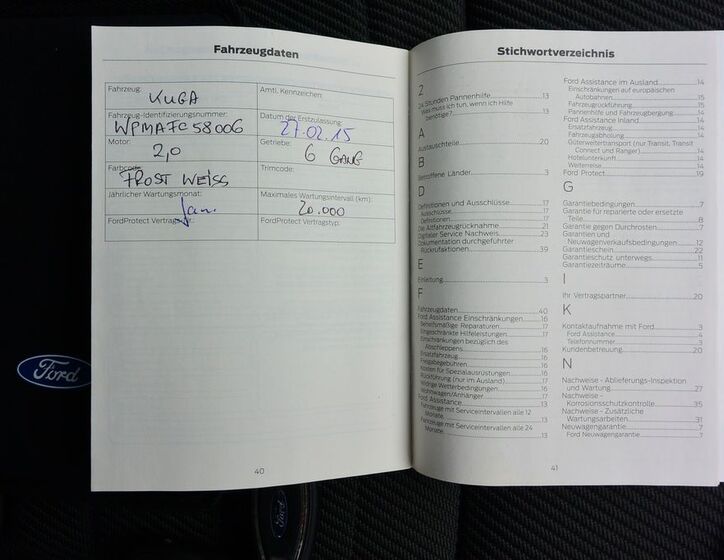 Fahrzeugdaten
Fahrzeug: KUGA
Amtl. Kennzeichen:
Fahrzeug-Identifizierungsnummer: WPMAFC58006
Datum der Erstzulassung: 27.02.15
Motor: 2,0
Getriebe: 6 GANG
Farbcode: FROST WEISS
Trimcode:
Jährlicher Wartungsmonat: Jan.
Maximales Wartungsintervall (km): 20.000
FordProtect Vertragsnr.:
FordProtect Vertragstyp:
40
Stichwortverzeichnis
2
24 Stunden Pannenhilfe 13
Was muss ich tun, wenn ich Hilfe
benötige? 13
A
Austauschteile 20
B
Betroffene Länder 3
D
Definitionen und Ausschlüsse 17
Ausschlüsse 17
Definitionen 17
Die Altfahrzeugrücknahme 21
Digitaler Service Nachweis 23
Dokumentation durchgeführter
Rückrufaktionen 39
E
Einleitung 3
F
Fahrzeugdaten 40
Ford Assistance Einschränkungen 16
Behelfsmäßige Reparaturen 17
Eingeschränkte Hilfeleistungen 17
Einschränkungen bezüglich des
Abschleppens 16
Ersatzfahrzeug 16
Freigabegebühren 16
Kosten für Spezialausrüstungen 16
Rückführung (nur im Ausland) 17
Widrige Wetterbedingungen 16
Wohnwagen/Anhänger 17
Ford Assistance 13
Fahrzeuge mit Serviceintervallen alle 12
Monate 13
Fahrzeuge mit Serviceintervallen alle 24
Monate 13
Ford Assistance im Ausland 14
Einschränkungen auf europäischen
Autobahnen 15
Fahrzeugrückführung 15
Pannenhilfe und Fahrzeugbergung 14
Ford Assistance Inland 14
Ersatzfahrzeug 14
Fahrzeugabholung 14
Güterweitertransport (nur Transit, Transit
Connect und Ranger) 14
Hotelunterkunft 14
Weiterreise 14
Ford Protect 19
G
Garantiebedingungen 7
Garantie für reparierte oder ersetzte
Teile 8
Garantie gegen Durchrosten 7
Garantien und
Neuwagenverkaufsbedingungen 12
Garantieschein 22
Garantieschutz unterwegs 11
Garantiezeiträume 5
I
Ihr Vertragspartner 20
K
Kontaktaufnahme mit Ford 3
Ford Assistance 4
Telefonnummer 3
Kundenbetreuung 20
N
Nachweise - Ablieferungs-Inspektion
und Wartung 27
Nachweise -
Korrosionsschutzkontrolle 35
Nachweise - Zusätzliche
Wartungsarbeiten 31
Neuwagengarantie 7
Ford Neuwagengarantie 7
41
Ford
Ford